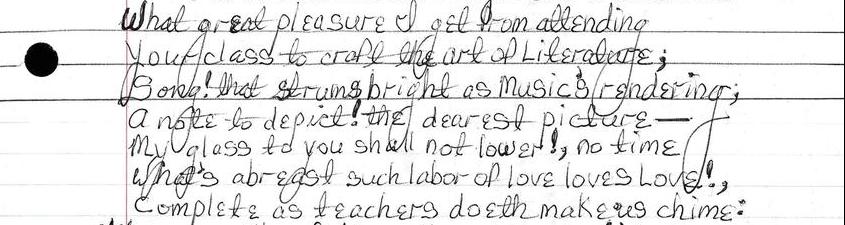 What great pleasure I get from attending
Your class to craft the art of Literature;
Song! that strums bright as Music's rendering;
a note to depict! the dearest picture—
My glass to you shall not lower!, no time
What's abreast such labor of love loves Love!,
Complete as teachers doeth make us chime: